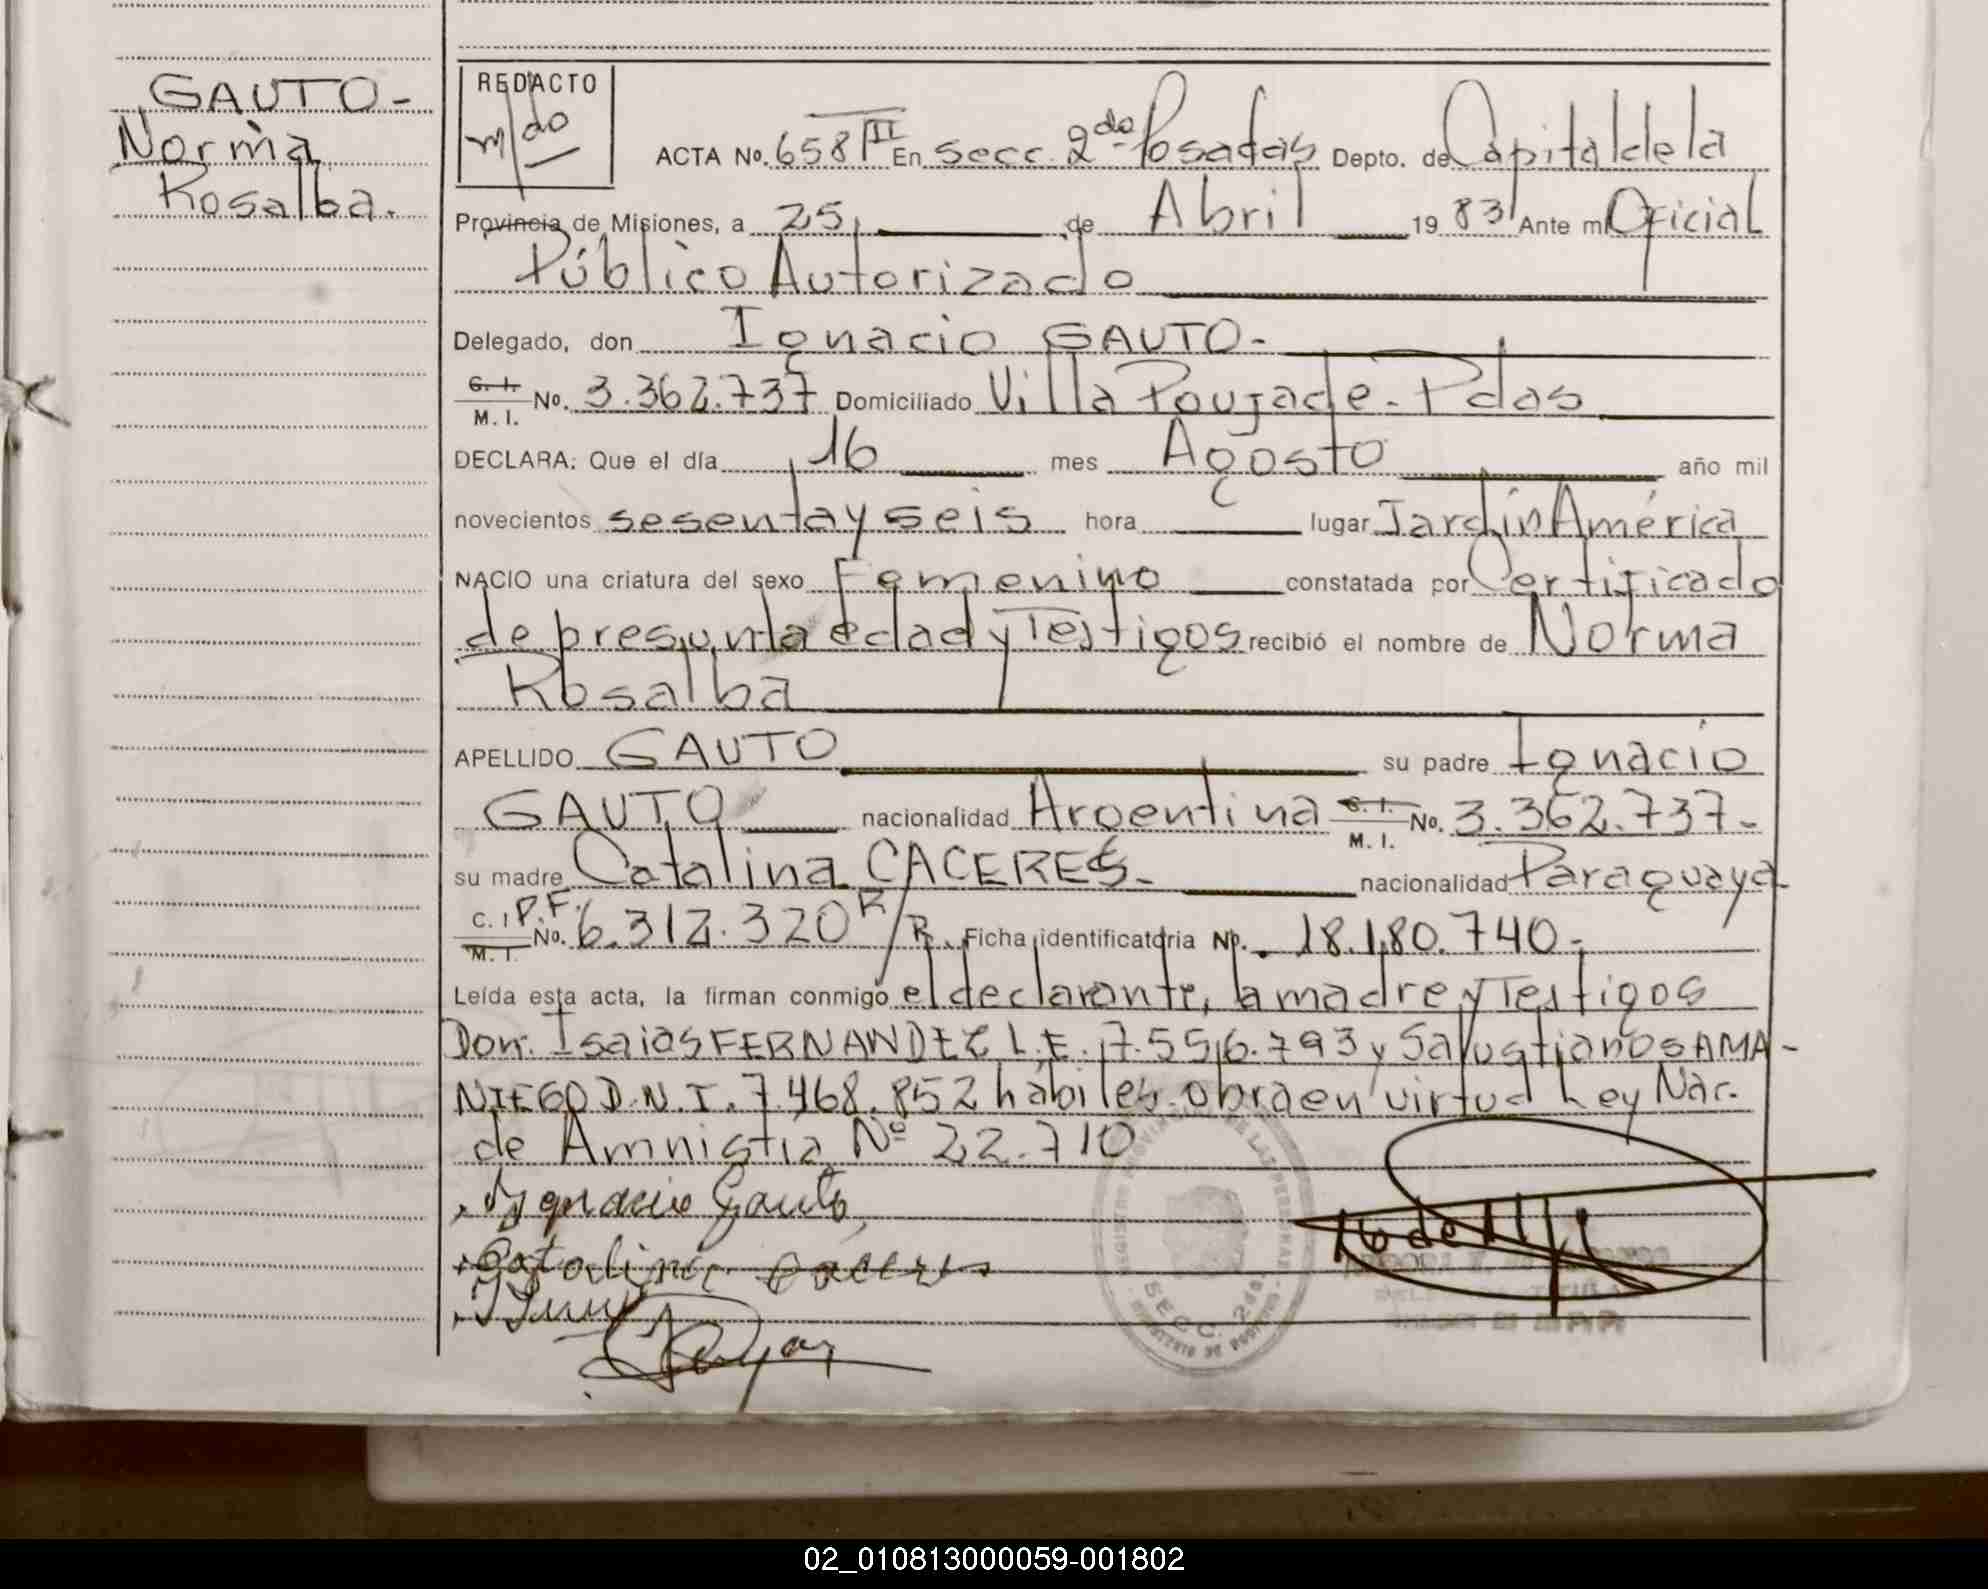 GAUTO-
Norma
Rosalba.
REDACTO
m/do
ACTA No. 658 TII En secc. 2da Posadas Depto. de Capital de la
Provincia de Misiones, a 25 de Abril 1983 Ante mi Oficial
Público Autorizado
Delegado, don Ignacio GAUTO-
C. I. M. I. No. 3.362.737 Domiciliado Villa Poujade - Pdas
DECLARA: Que el día 16 mes Agosto año mil
novecientos sesenta y seis hora lugar Jardín América
NACIO una criatura del sexo Femenino constatada por Certificado
de presunta edad y Testigos recibió el nombre de Norma
Rosalba
APELLIDO GAUTO su padre Ignacio
GAUTO nacionalidad Argentina C. I. M. I. No. 3.362.737-
su madre Catalina CACERES- nacionalidad Paraguaya
C. I. P.F. M. I. No. 6.312.320 R/R Ficha identificatoria No. 18.180.740-
Leída esta acta, la firman conmigo el declarante, la madre y Testigos
Don: Isaias FERNANDEZ L.E. 7.556.793 y Salustiano SAMA-
NIEGO D.N.I. 7.468.852 hábiles obra en virtud Ley Nac.
de Amnistia Nº 22.710
Ygnacio Gauto
Catalina Caceres
SECC. 2da.
02_010813000059-001802